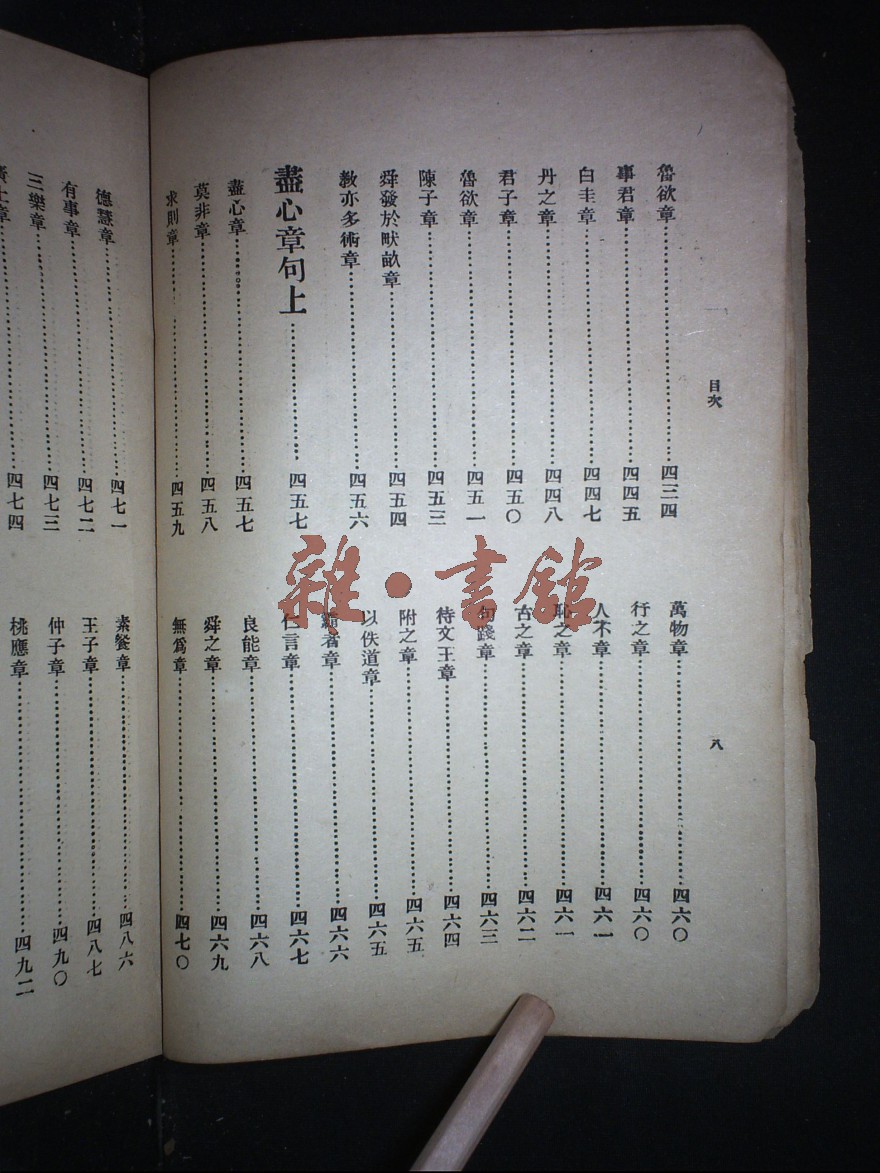 目次
八
魯欲章 四三四
事君章 四四五
白圭章 四四七
丹之章 四四八
君子章 四五〇
魯欲章 四五一
陳子章 四五三
舜發於畎畝章 四五四
教亦多術章 四五六
盡心章句上 四五七
盡心章 四五七
莫非章 四五八
求則章 四五九
萬物章 四六〇
行之章 四六〇
人不章 四六一
恥之章 四六一
古之章 四六二
句踐章 四六三
待文王章 四六四
附之章 四六五
以佚道章 四六五
霸者章 四六六
仁言章 四六七
良能章 四六八
舜之章 四六九
無爲章 四七〇
德慧章 四七一
有事章 四七二
三樂章 四七三
四七四
素餐章 四八六
王子章 四八七
仲子章 四九〇
桃應章 四九二
雜·書館